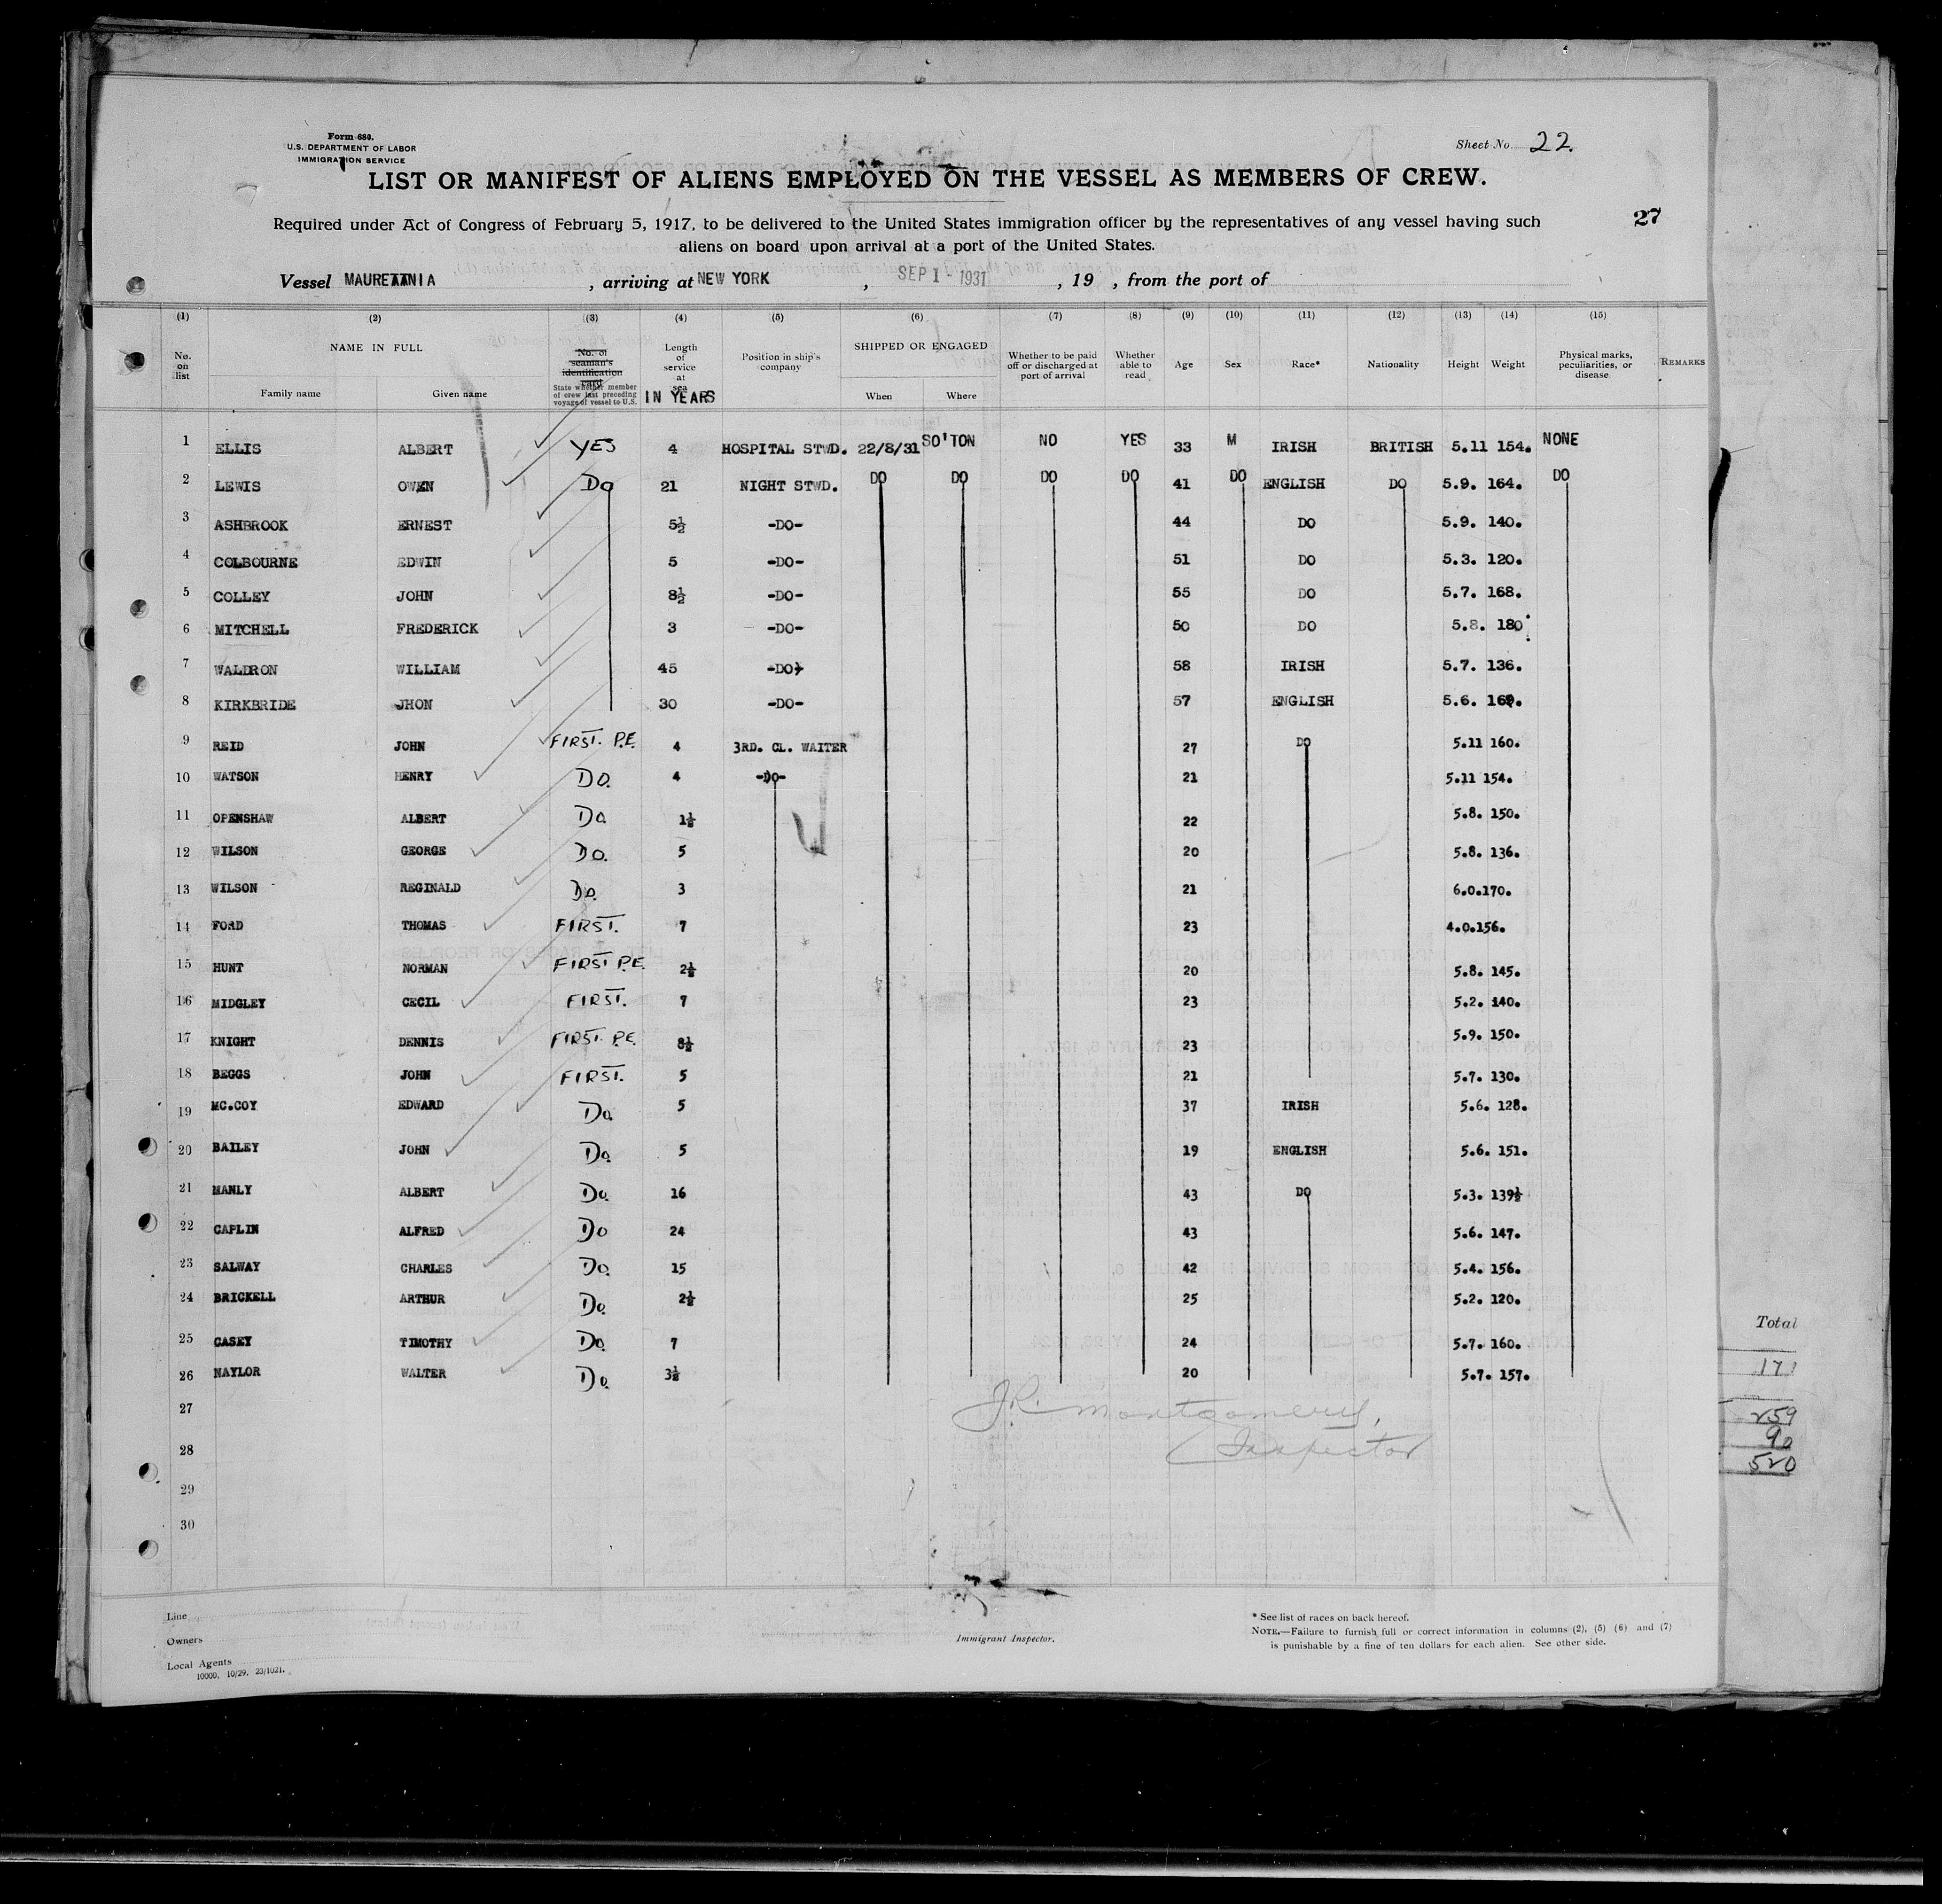 Form 680.
U.S. DEPARTMENT OF LABOR
IMMIGRATION SERVICE
Sheet No. 22.
LIST OR MANIFEST OF ALIENS EMPLOYED ON THE VESSEL AS MEMBERS OF CREW.
27
Required under Act of Congress of February 5, 1917, to be delivered to the United States immigration officer by the representatives of any vessel having such
aliens on board upon arrival at a port of the United States.
Vessel MAURETANIA , arriving at NEW YORK , SEP 1 - 1931 , 19 , from the port of
(1) (2) (3) (4) (5) (6) (7) (8) (9) (10) (11) (12) (13) (14) (15)
No. on list NAME IN FULL Family name Given name No. of seaman's identification card State whether member of crew last preceding voyage of vessel to U.S. Length of service at sea IN YEARS Position in ship's company SHIPPED OR ENGAGED When Where Whether to be paid off or discharged at port of arrival Whether able to read Age Sex Race* Nationality Height Weight Physical marks, peculiarities, or disease REMARKS
1 ELLIS ALBERT YES 4 HOSPITAL STWD. 22/8/31 SO'TON NO YES 33 M IRISH BRITISH 5.11 154. NONE
2 LEWIS OWEN DO 21 NIGHT STWD. DO DO DO DO 41 DO ENGLISH DO 5.9. 164. DO
3 ASHBROOK ERNEST 5½ -DO- 44 DO 5.9. 140.
4 COLBOURNE EDWIN 5 -DO- 51 DO 5.3. 120.
5 COLLEY JOHN 8½ -DO- 55 DO 5.7. 168.
6 MITCHELL FREDERICK 3 -DO- 50 DO 5.8. 180.
7 WALDRON WILLIAM 45 -DO- 58 IRISH 5.7. 136.
8 KIRKBRIDE JHON 30 -DO- 57 ENGLISH 5.6.
9 REID JOHN FIRST. P.E. 4 3RD. CL. WAITER 27 DO 5.11 160.
10 WATSON HENRY DO. 4 -DO- 21 5.11 154.
11 OPENSHAW ALBERT Do 1½ 22 5.8. 150.
12 WILSON GEORGE Do. 5 20 5.8. 136.
13 WILSON REGINALD Do. 3 21 6.0.170.
14 FORD THOMAS FIRST. 7 23 4.0.156.
15 HUNT NORMAN FIRST P.E. 2½ 20 5.8. 145.
16 MIDGLEY CECIL FIRST. 7 23 5.2. 140.
17 KNIGHT DENNIS FIRST. P.E. 8½ 23 5.9. 150.
18 BEGGS JOHN FIRST. 5 21 5.7. 130.
19 MC.COY EDWARD Do 5 37 IRISH 5.6. 128.
20 BAILEY JOHN Do 5 19 ENGLISH 5.6. 151.
21 MANLY ALBERT Do 16 43 DO 5.3. 139½
22 CAPLIN ALFRED Do 24 43 5.6. 147.
23 SALWAY CHARLES Do 15 42 5.4. 156.
24 BRICKELL ARTHUR Do 2½ 25 5.2. 120.
25 CASEY TIMOTHY Do 7 24 5.7. 160.
26 NAYLOR WALTER Do 3½ 20 5.7. 157.
27
28
29
30
J.R. Montgomery,
Inspector
Total
259
90
520
Line
Owners
Local Agents
10000. 10/29. 23/1021.
Immigrant Inspector.
* See list of races on back hereof.
NOTE.—Failure to furnish full or correct information in columns (2), (5) (6) and (7)
is punishable by a fine of ten dollars for each alien. See other side.